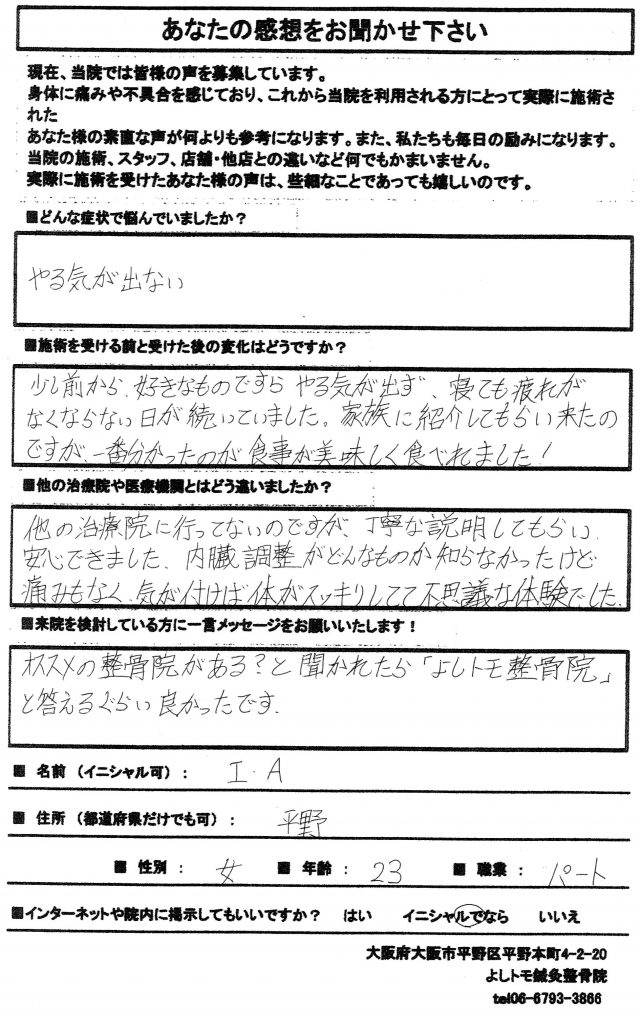 あなたの感想をお聞かせ下さい
現在、当院では皆様の声を募集しています。
身体に痛みや不具合を感じており、これから当院を利用される方にとって実際に施術さ
れた
あなた様の素直な声が何よりも参考になります。また、私たちも毎日の励みになります。
当院の施術、スタッフ、店舗・他店との違いなど何でもかまいません。
実際に施術を受けたあなた様の声は、些細なことであっても嬉しいのです。
■どんな症状で悩んでいましたか?
やる気が出ない
■施術を受ける前と受けた後の変化はどうですか?
少し前から、好きなものですら やる気が出ず、寝ても疲れが
なくならない日が続いていました。家族に紹介してもらい来たの
ですが、一番分かったのが食事が美味しく食べれました!
■他の治療院や医療機関とはどう違いましたか?
他の治療院に行ってないのですが、丁寧な説明してもらい、
安心できました、内臓調整がどんなものか知らなかったけど
痛みもなく、気が付けば体がスッキリしてて不思議な体験でした。
■来院を検討している方に一言メッセージをお願いいたします!
オススメの整骨院がある?と聞かれたら「よしトモ整骨院」
と答えるぐらい良かったです.
■ 名前(イニシャル可): I.A
■ 住所(都道府県だけでも可): 平野
■ 性別: 女 ■ 年齢: 23 ■ 職業: パート
■インターネットや院内に掲示してもいいですか? はい イニシャルでなら いいえ
大阪府大阪市平野区平野本町4-2-20
よしトモ鍼灸整骨院
tel06-6793-3866